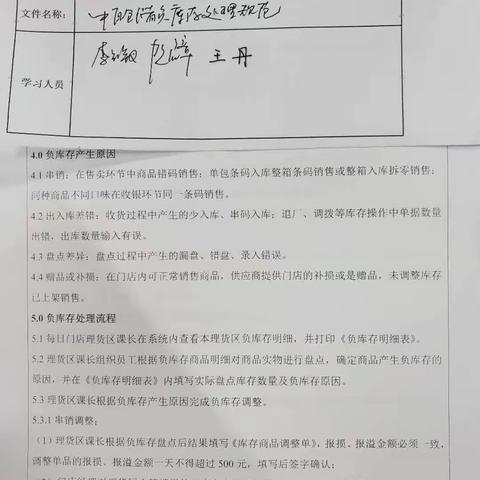 文件名称：
学习人员 王丹
4.0 负库存产生原因
4.1 串销：在售卖环节中商品错码销售；单包条码入库整箱条码销售或整箱入库拆零销售；
同种商品不同口味在收银环节同一条码销售。
4.2 出入库差错：收货过程中产生的少入库、串码入库；退厂、调拨等库存操作中单据数量
出错，出库数量输入有误。
4.3 盘点差异：盘点过程中产生的漏盘、错盘、录入错误。
4.4 赠品或补损：在门店内可正常销售商品，供应商提供门店的补损或是赠品，未调整库存
已上架销售。
5.0 负库存处理流程
5.1 每日门店理货区课长在系统内查看本理货区负库存明细，并打印《负库存明细表》。
5.2 理货区课长组织员工根据负库存商品明细对商品实物进行盘点，确定商品产生负库存的
原因，并在《负库存明细表》内填写实际盘点库存数量及负库存原因。
5.3 理货区课长根据负库存产生原因完成负库存调整。
5.3.1 串销调整：
（1）理货区课长根据负库存盘点后结果填写《库存商品调整单》，报损、报溢金额必须一致，
调整单品的报损、报溢金额一天不得超过 500 元，填写后签字确认；